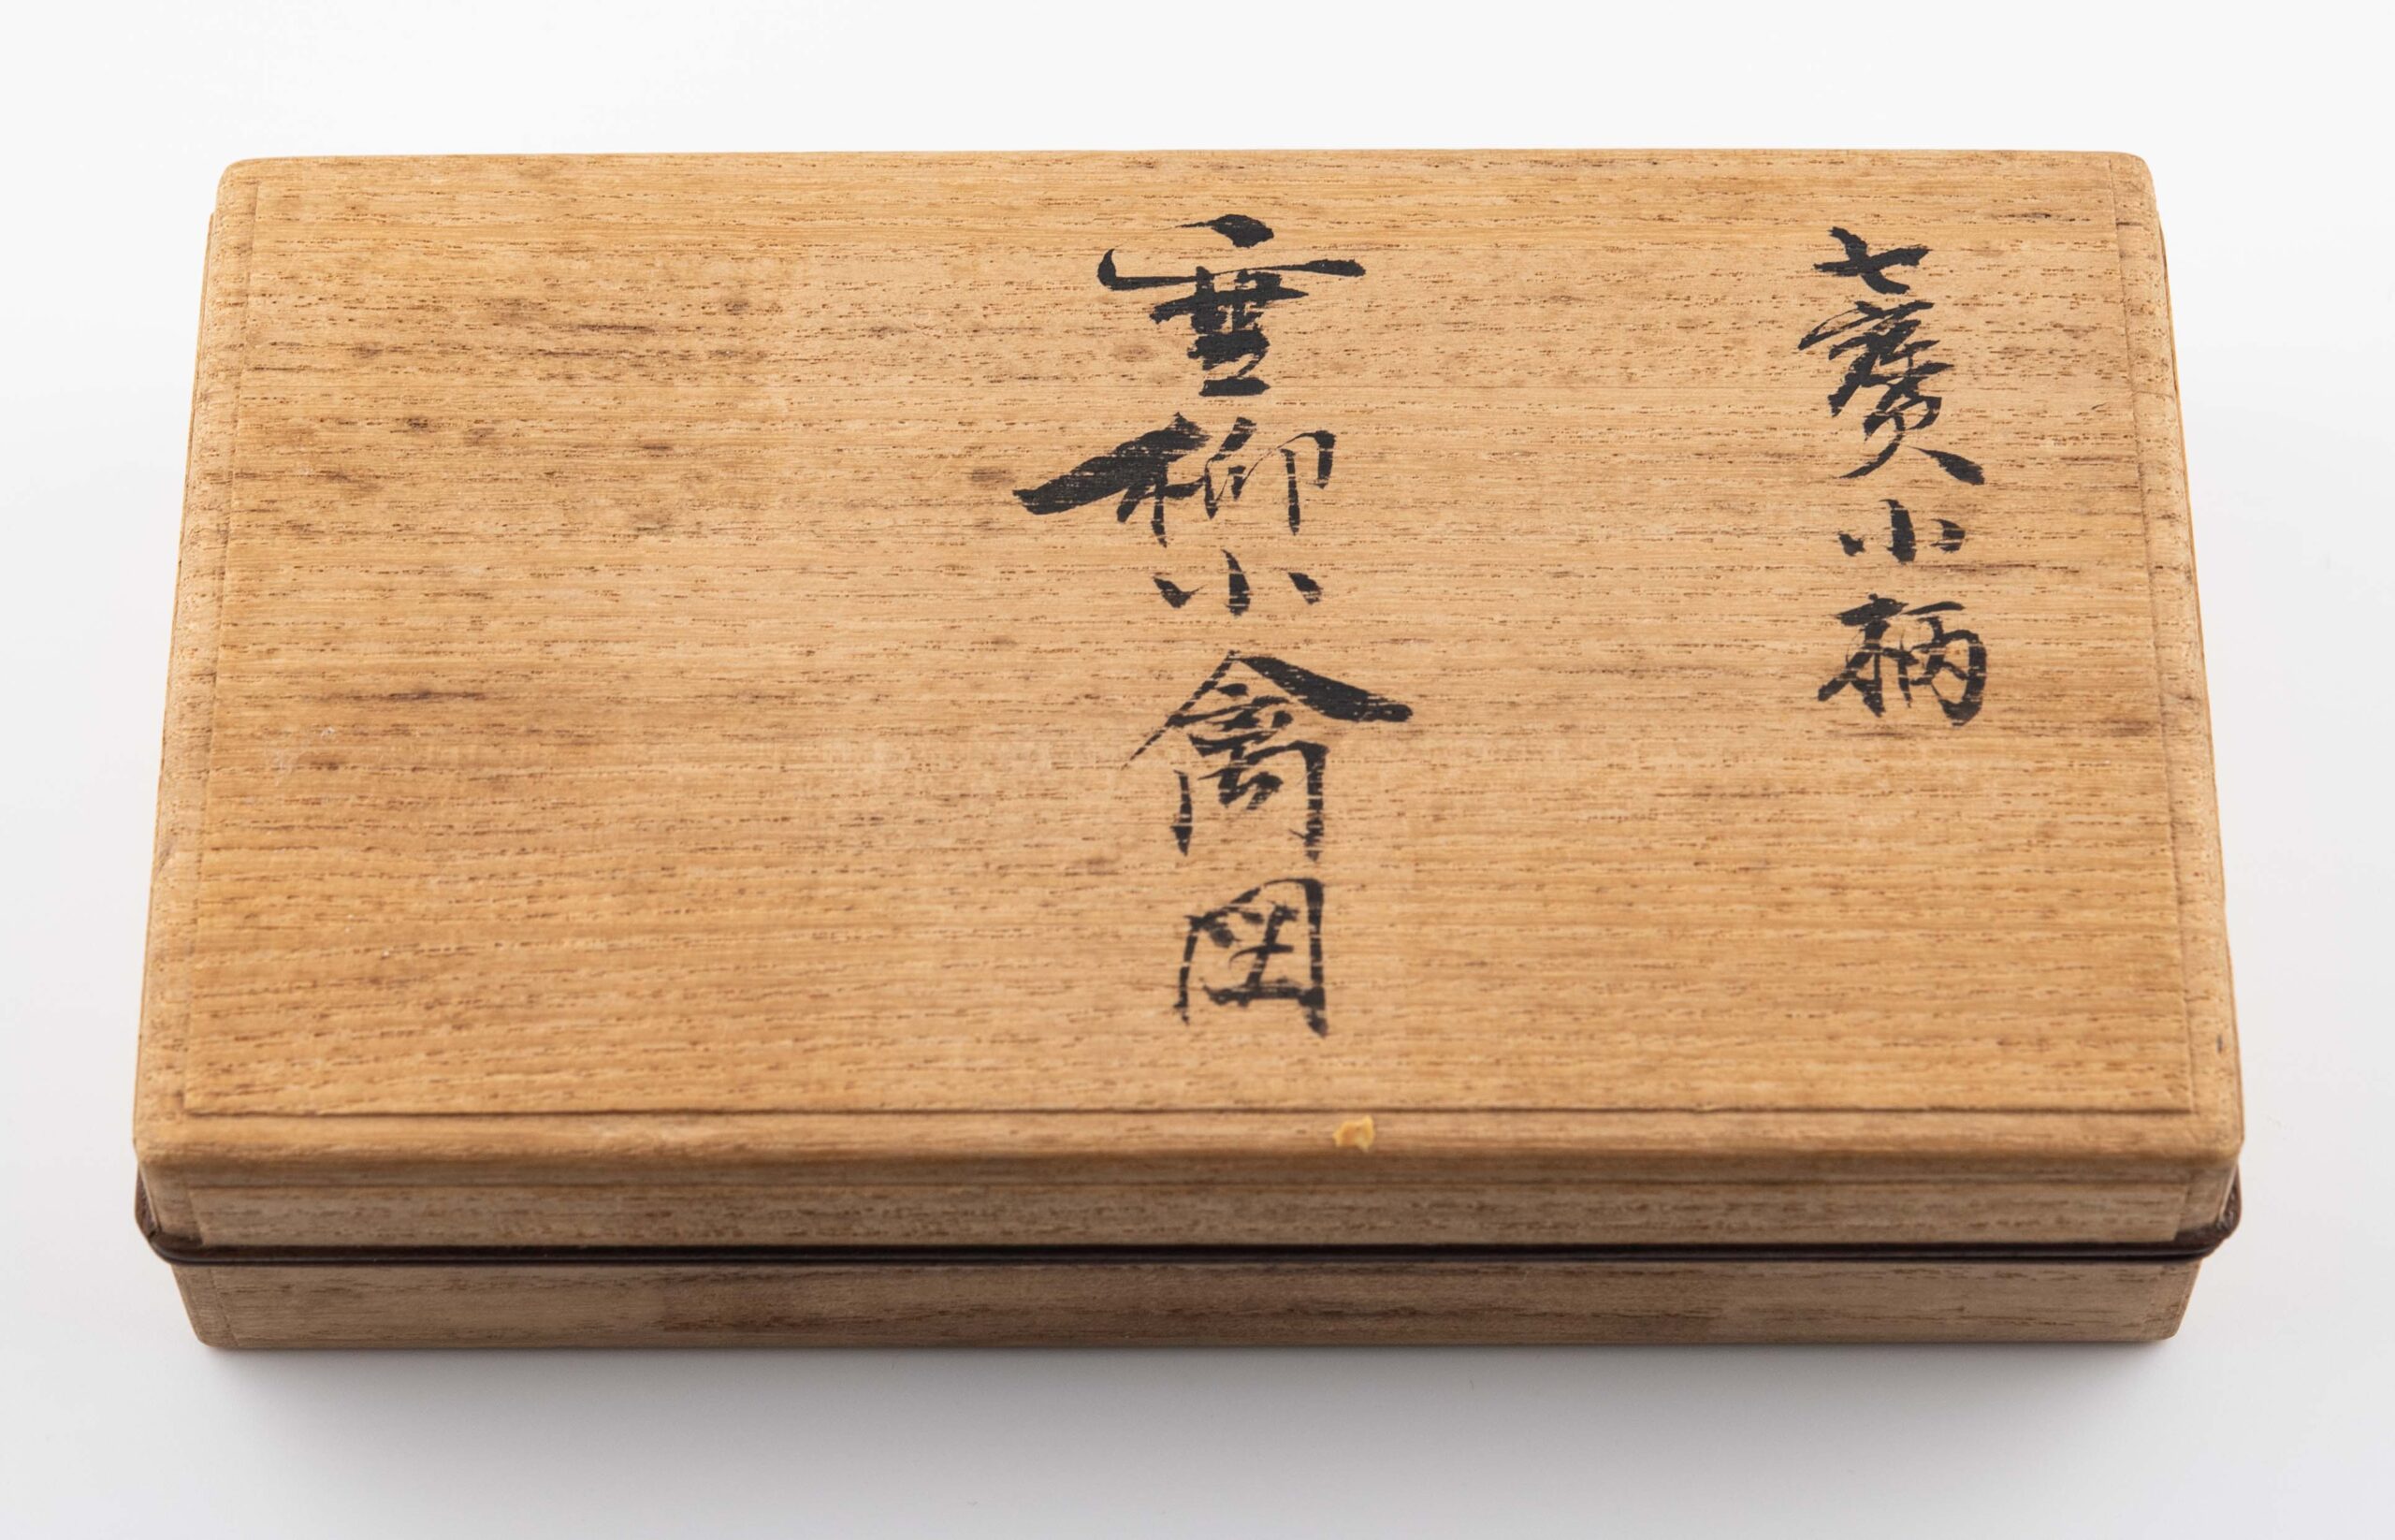 七寶小柄
垂柳小禽図